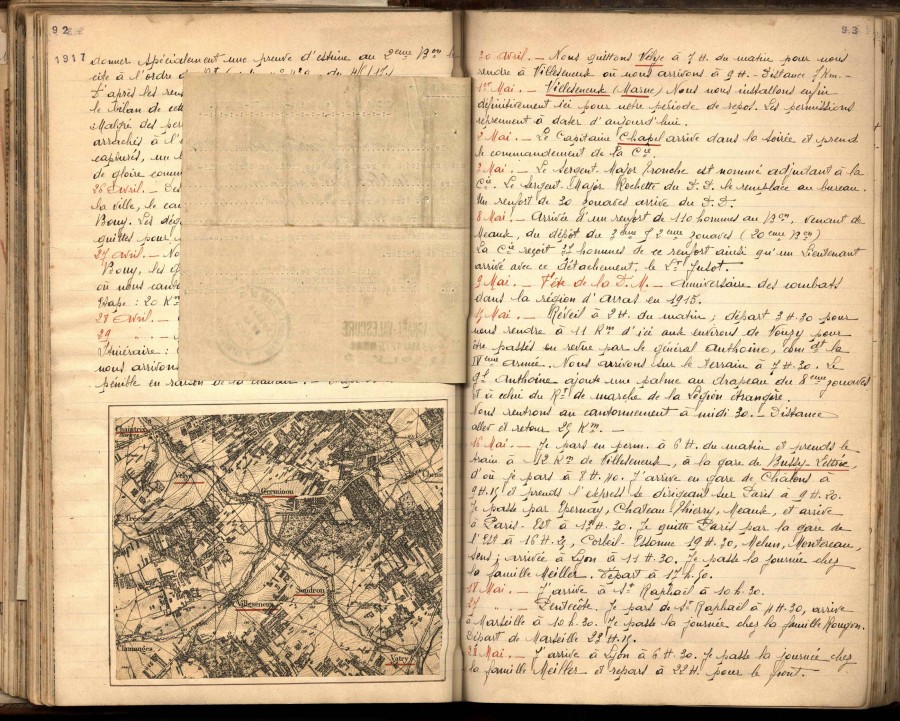 92
1917 donner spécialement une preuve d'estime au 2eme Bon
cité à l'ordre
D'après les
le bilan de
Malgré des
arrachés à l'
capturés, un
de gloire
26 Avril. —
la ville, le
Bouy. Les
quittés pour
27 Avril. — No
Bouy, les
où nous
Etape : 20 Km
28 Avril. —
29 " —
Itinéraire :
nous arrivons
pénible en raison de la chaleur. —
Chaintrix
Vélye
Germinon
Trécon
Villeseneux
Soudron
Clamanges
Vatry
93
30 Avril. — Nous quittons Vélye à 7 H. du matin pour nous
rendre à Villeseneux où nous arrivons à 9 H. — Distance 7 Km. —
1er Mai. — Villeseneux (Marne) Nous nous installons enfin
définitivement ici pour notre période de repos. Les permissions
reprennent à dater d'aujourd'hui.
Mai. — Le Capitaine Chapel arrive dans la soirée et prend
le commandement de la Cie.
Mai. — Le Sergent Major Tronche est nommé adjudant à la
Cie. Le Sergent Major Rochette du D. D. le remplace au bureau.
Un renfort de 30 zouaves arrive du D. D.
8 Mai. — Arrivée d'un renfort de 110 hommes au Bon, venant de
Meaux, du dépôt du 3eme & 2eme zouaves (20eme Bon)
La Cie reçoit 37 hommes de ce renfort ainsi qu'un Lieutenant
arrivé avec ce détachement, le Lt Jusot.
9 Mai. — Fête de la D. M. — Anniversaire des combats
dans la région d'Arras en 1915.
Mai. — Réveil à 2 H. du matin ; départ 3 H. 30 pour
nous rendre à 11 Km d'ici aux environs de Vouzy pour
être passés en revue par le général Anthoine, comdt la
IVeme Armée. Nous arrivons sur le terrain à 7 H. 30. Le
gal Anthoine ajoute une palme au drapeau du 8eme zouaves
et à celui du Rt de marche de la Légion étrangère.
Nous rentrons au cantonnement à midi 30. — Distance
aller et retour 25 Km. —
16 Mai. — Je pars en perm. à 6 H. du matin et prends le
train à 12 Km de Villeseneux, à la gare de Bussy-Lettrée,
d'où je pars à 8 H. 40. J'arrive en gare de Châlons à
9 H. 15 et prends l'express se dirigeant sur Paris à 9 H. 20.
Je passe par Epernay, Chateau-Thierry, Meaux, et arrive
à Paris-Est à 12 H. 30. Je quitte Paris par la gare de
l'Est à 16 H. 3, Corbeil-Essonne 19 H. 30, Melun, Montereau,
Sens ; arrivée à Lyon à 11 H. 30. Je passe la journée chez
la famille Meiller. Départ à 17 H. 50.
18 Mai. — J'arrive à St Raphaël à 10 H. 30.
27 " — Pentecôte. Je pars de St Raphaël à 4 H. 30, arrive
à Marseille à 10 H. 30. Je passe la journée chez la famille Rougon.
Départ de Marseille 22 H. 15.
28 Mai. — J'arrive à Lyon à 6 H. 30. Je passe la journée chez
la famille Meiller et repars à 22 H. pour le front.